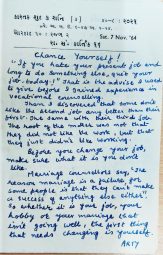 Chance Yourself !
"If you hate your present job and
long to do something else, quit your
job today!" That is the advice I used
to give before I gained experience in
vocational counselling.
Then I discovered that some didn't
like the second job any better than their
first. The same with their third job.
The root of the matter was not that
they did not like the work, but that
they just didn't like working.
Before you change your job,
make sure what it is you don't
like.
Marriage counsellors say, "The
reason marriage is a failure for
some people is that they can't make
a success of anything else either".
So whether it is your job, your
hobby or your marriage that
isn't going well, the first thing
that needs changing is yourself.